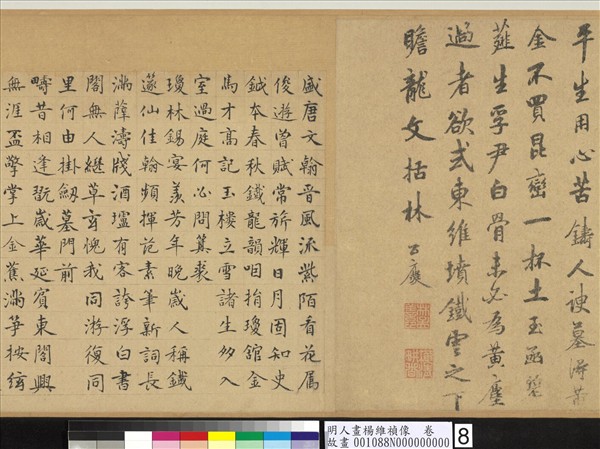 平生用心苦鑄人諛墓游黃
金不買昆巒一杯土玉函
薤生孚尹白骨未必為黃塵
過者欲式東維墳鐵雲之下
瞻龍文括林
公慶
盛唐文翰晉風派紫陌看花屬
俊遊曾賦常旂輝日月固知史
鉞本春秋鐵龍韻咽指瓊舘金
馬才高記玉樓立雪諸生多入
室過庭何必問箕裘
瓊林錫宴羨芳年晚歲人稱鐵
篴仙佳翰頻揮詫素筆新詞長
滿薛濤牋酒壚有客誇浮白書
閣無人繼草玄愧我同游復同
里何由掛劒墓門前
疇昔相逢翫歲華延賓東閣興
無涯盃擎掌上金蕉滿箏按絃
明人畫楊維禎像 卷
故畫 001088N000000000
8